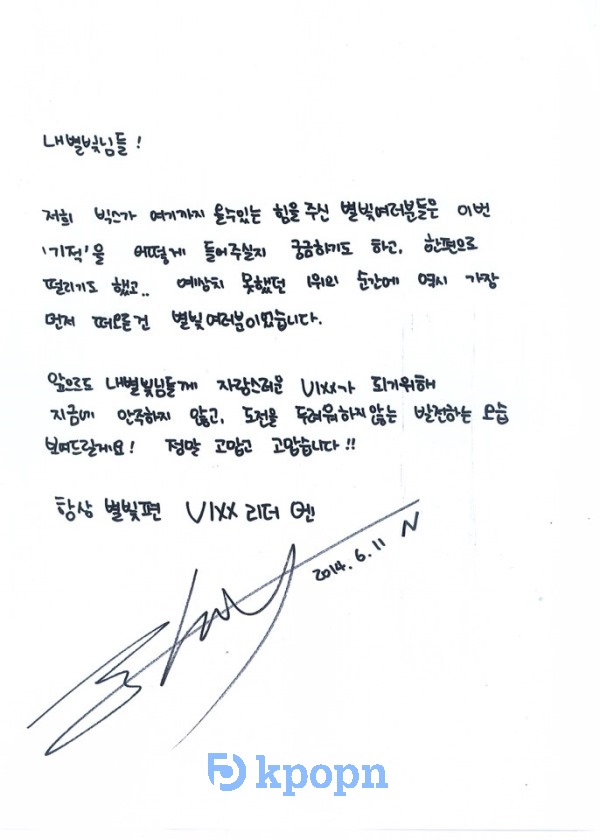 내별빛님들!
저희 빅스가 여기까지 올수있는 힘을 주신 별빛여러분들은 이번
'기적'을 어떻게 들어주실지 궁금하기도 하고, 한편으로
떨리기도 했고.. 예상치 못했던 1위의 순간에 역시 가장
먼저 떠오른건 별빛여러분이었습니다.
앞으로도 내별빛님들께 자랑스러운 VIXX가 되기위해
지금에 안주하지 않고, 도전을 두려워하지않는 발전하는 모습
보여드릴게요! 정말 고맙고 고맙습니다!!
항상 별빛편 VIXX 리더 엔
2014. 6. 11 N
kpopn